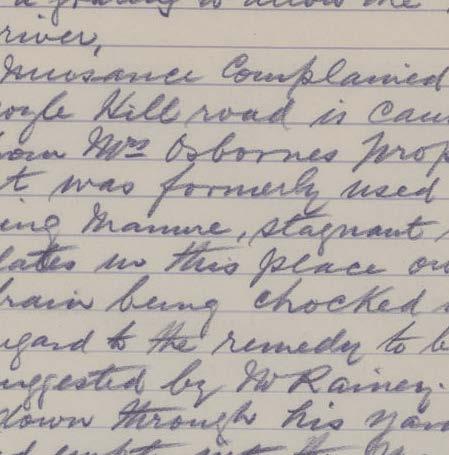 a grating to allow the
river,
Nuisance Complained
oyle Hill road is cau
from Mrs Osbornes prop
t was formerly used
ing manure, stagnant
lates in this place ow
rain being chocked
egard to the remedy to b
uggested by Mr Rainey.
down through his yar